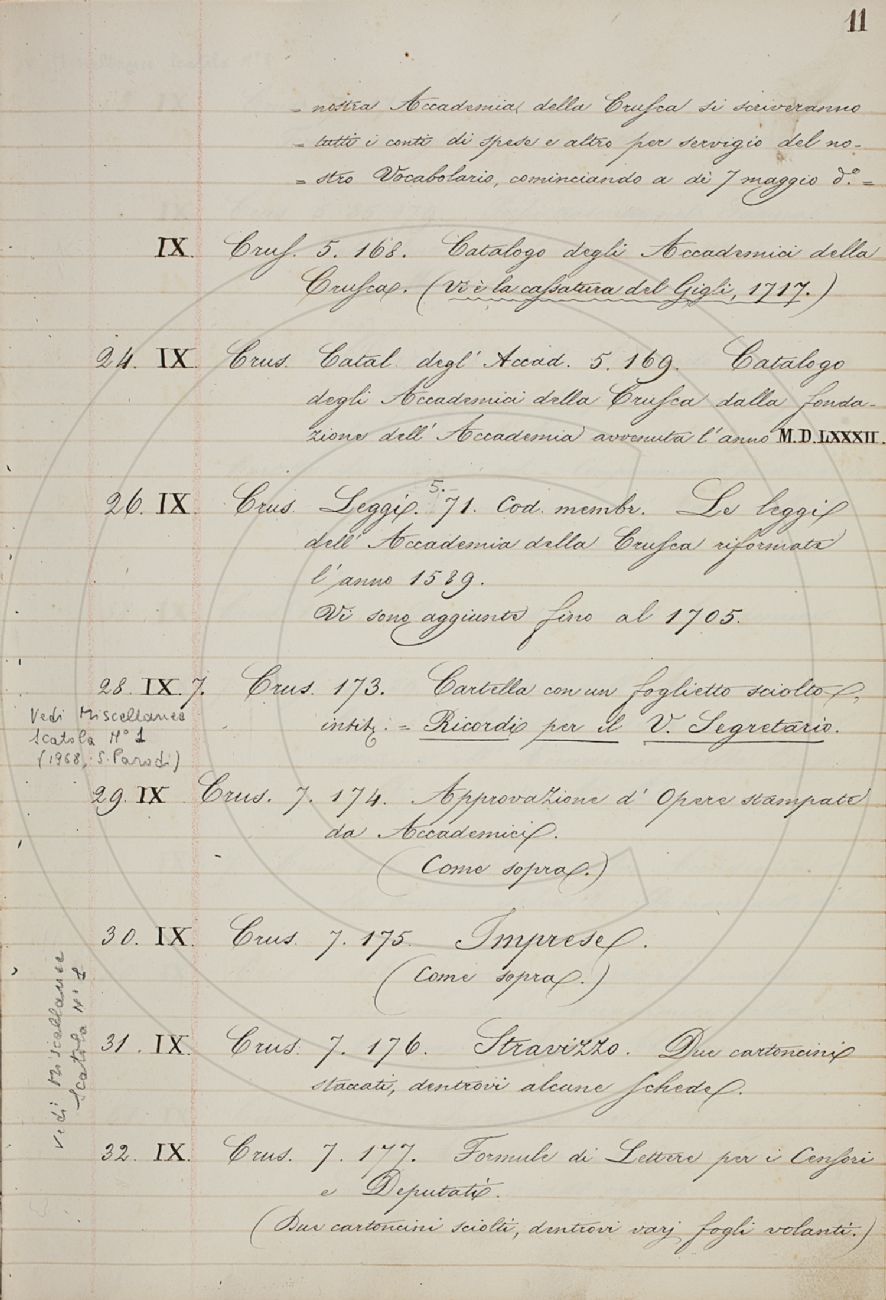 11
= nostra Accademia della Crusca si scriveranno
= tutti i conti di spese e altro per servigio del no-
= stro Vocabolario, cominciando a dì 7 maggio d.º =
IX. Crus. 5. 168. Catalogo degli Accademici della
Crusca. (Vi è la cassatura del Gigli, 1717.)
24. IX. Crus. Catal. degl' Accad. 5. 169. Catalogo
degli Accademici della Crusca dalla fonda-
zione dell' Accademia avvenuta l'anno M.D.LXXXII.
26. IX. Crus. Leggi. 5. 71. Cod. membr. Le leggi
dell' Accademia della Crusca riformate
l'anno 1589.
Vi sono aggiunte fino al 1705.
28. IX. 7. Crus. 173. Cartella con un foglietto sciolto,
intit. = Ricordi per il V. Segretario.
Vedi Miscellanea
Scatola N° 1
(1968, S. Parodi)
29. IX Crus. 7. 174. Approvazione d' Opere stampate
da Accademici.
(Come sopra.)
30. IX. Crus. 7. 175. Imprese.
(Come sopra.)
31. IX. Crus. 7. 176. Stravizzo. Due cartoncini
staccati, dentrovi alcune schede.
Vedi Miscellanee
Scatola N° 1
32. IX. Crus. 7. 177. Formule di Lettere per i Censori
e Deputati.
(Due cartoncini sciolti, dentrovi varj fogli volanti.)